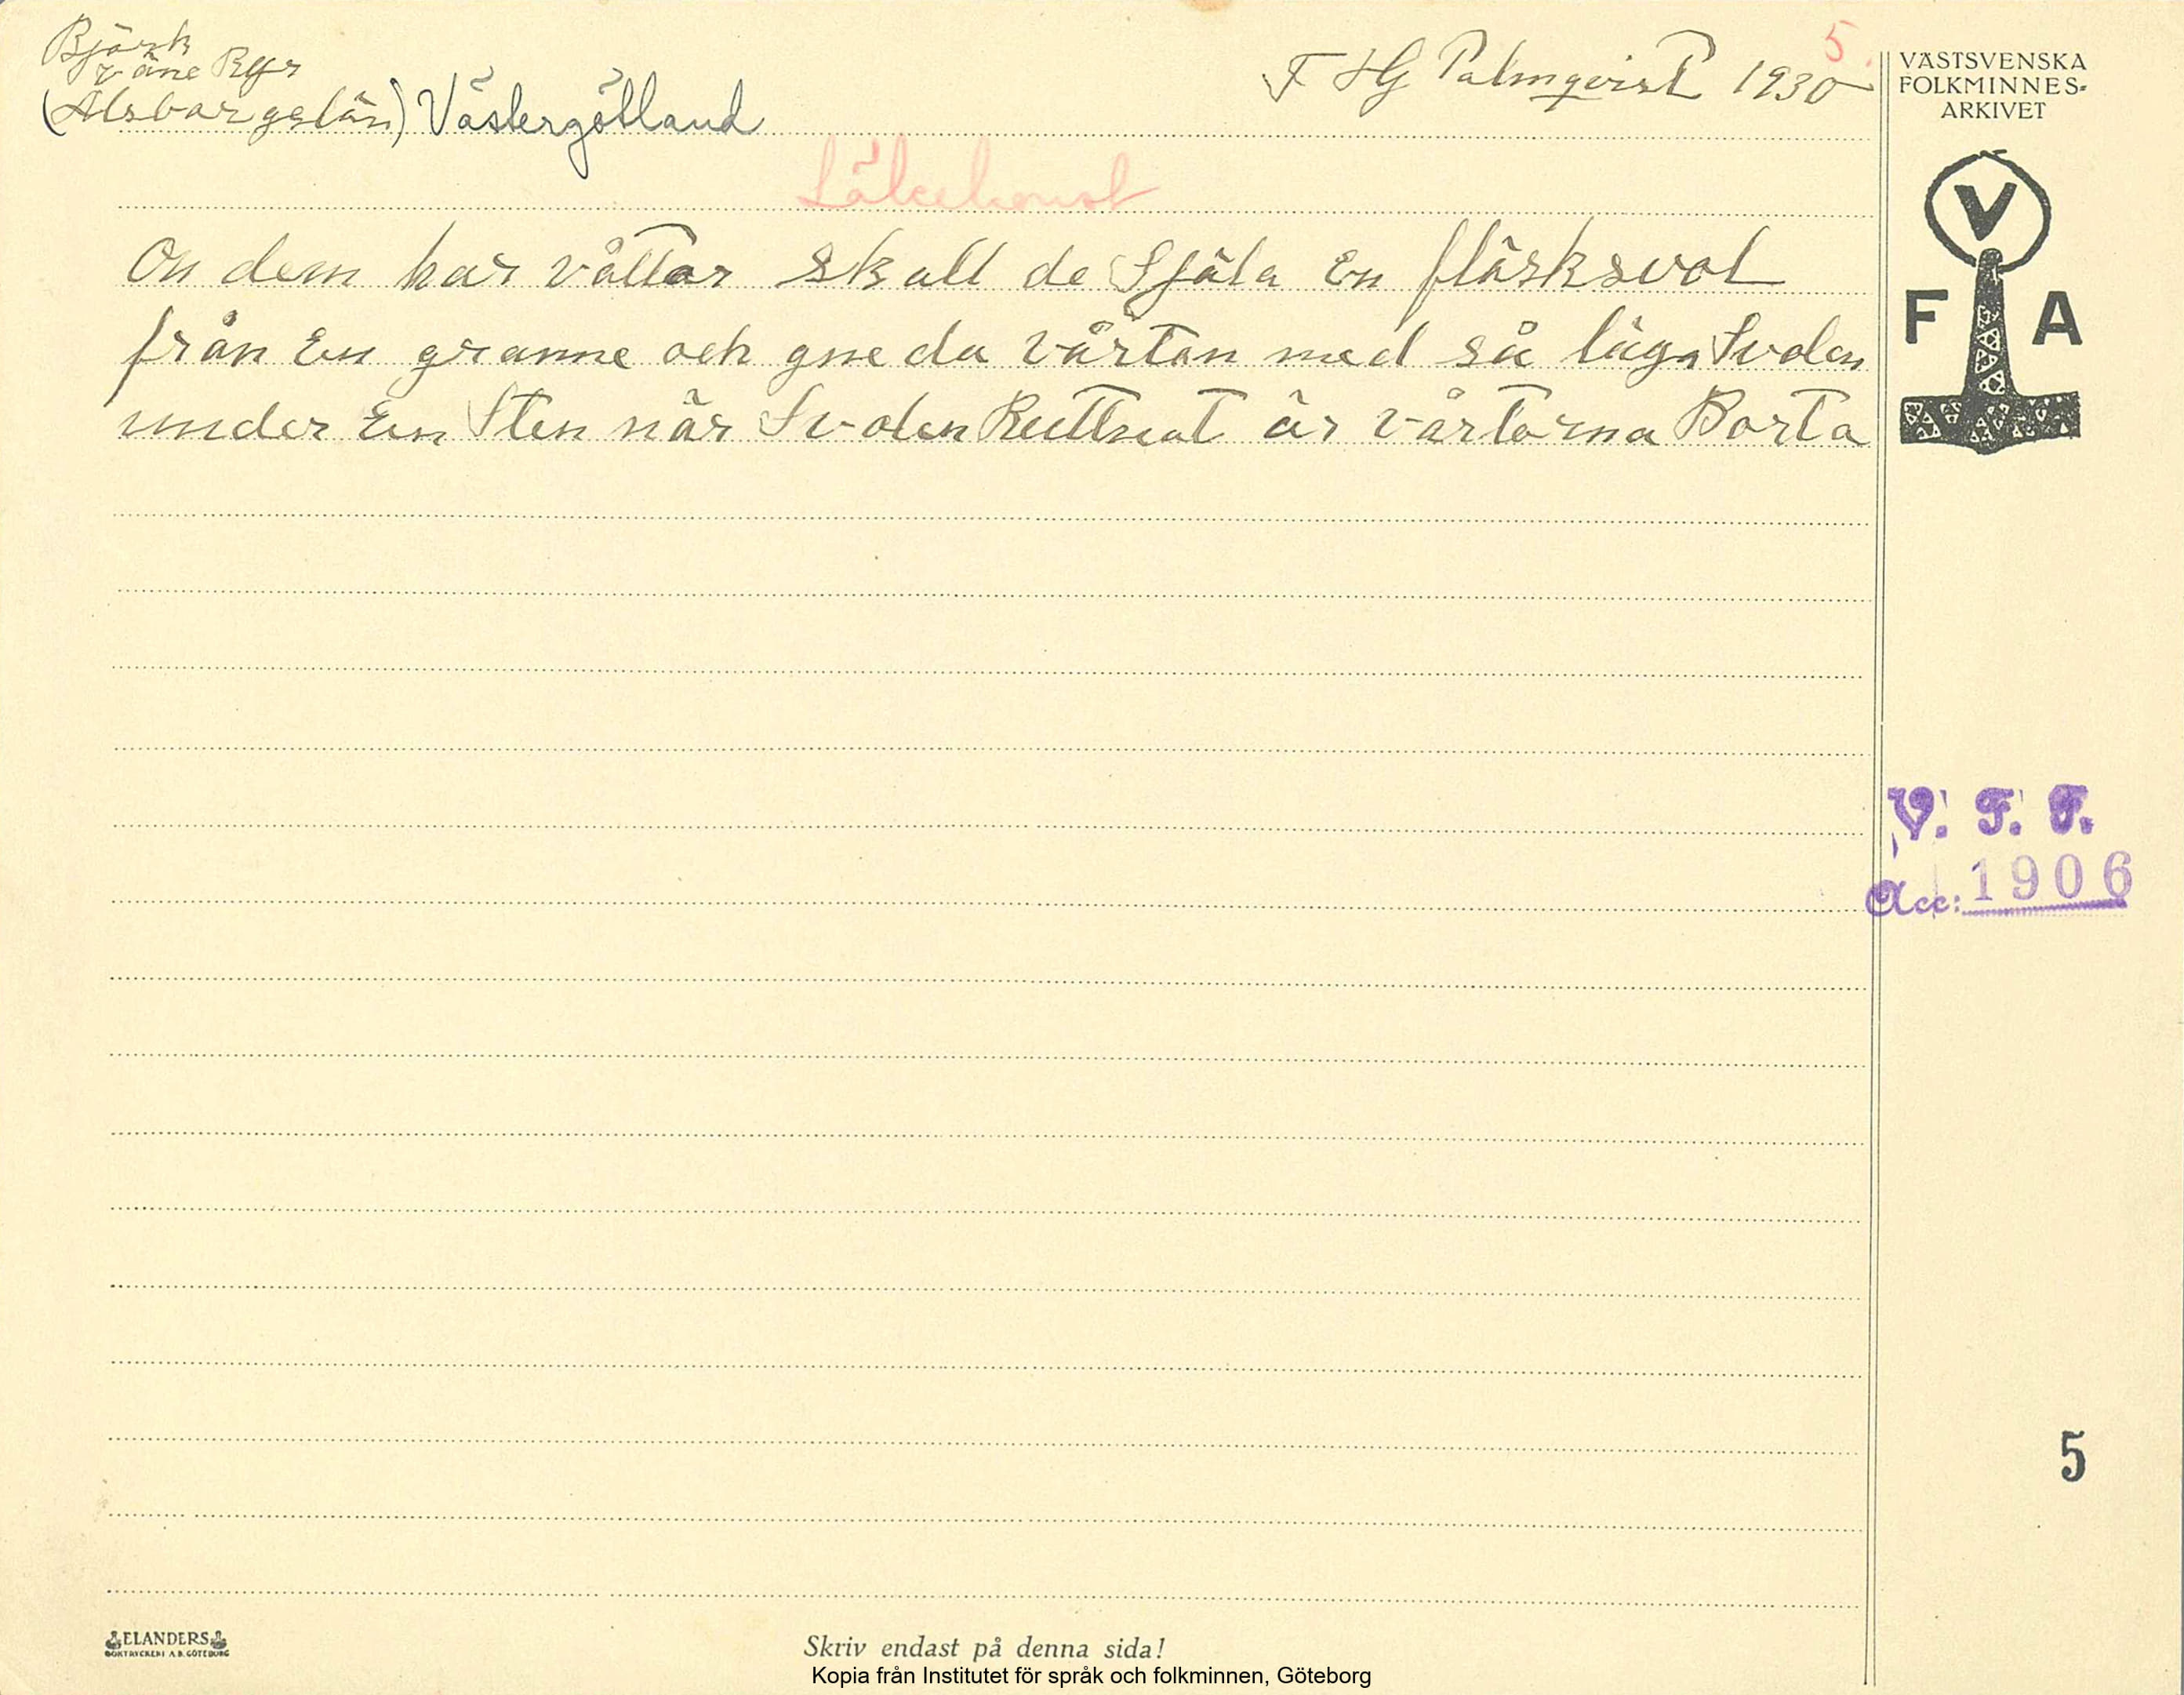 Björk
väne Ryr
(Älsborgslän) Västergötland
F HG Palmqvist 1930
5.
VÄSTSVENSKA
FOLKMINNES-
ARKIVET
Läkekonst
V
F A
On dem har våttor skall de Själa En fläsksvol
från En granne och gneda vårtan med så läga Svolen
under En Sten när Svolen Ruttnat är vårtorna Borta
V. F. F.
Acc: 1906
5
ELANDERS
BOKTRYCKERI A.B. GÖTEBORG
Skriv endast på denna sida!
Kopia från Institutet för språk och folkminnen, Göteborg